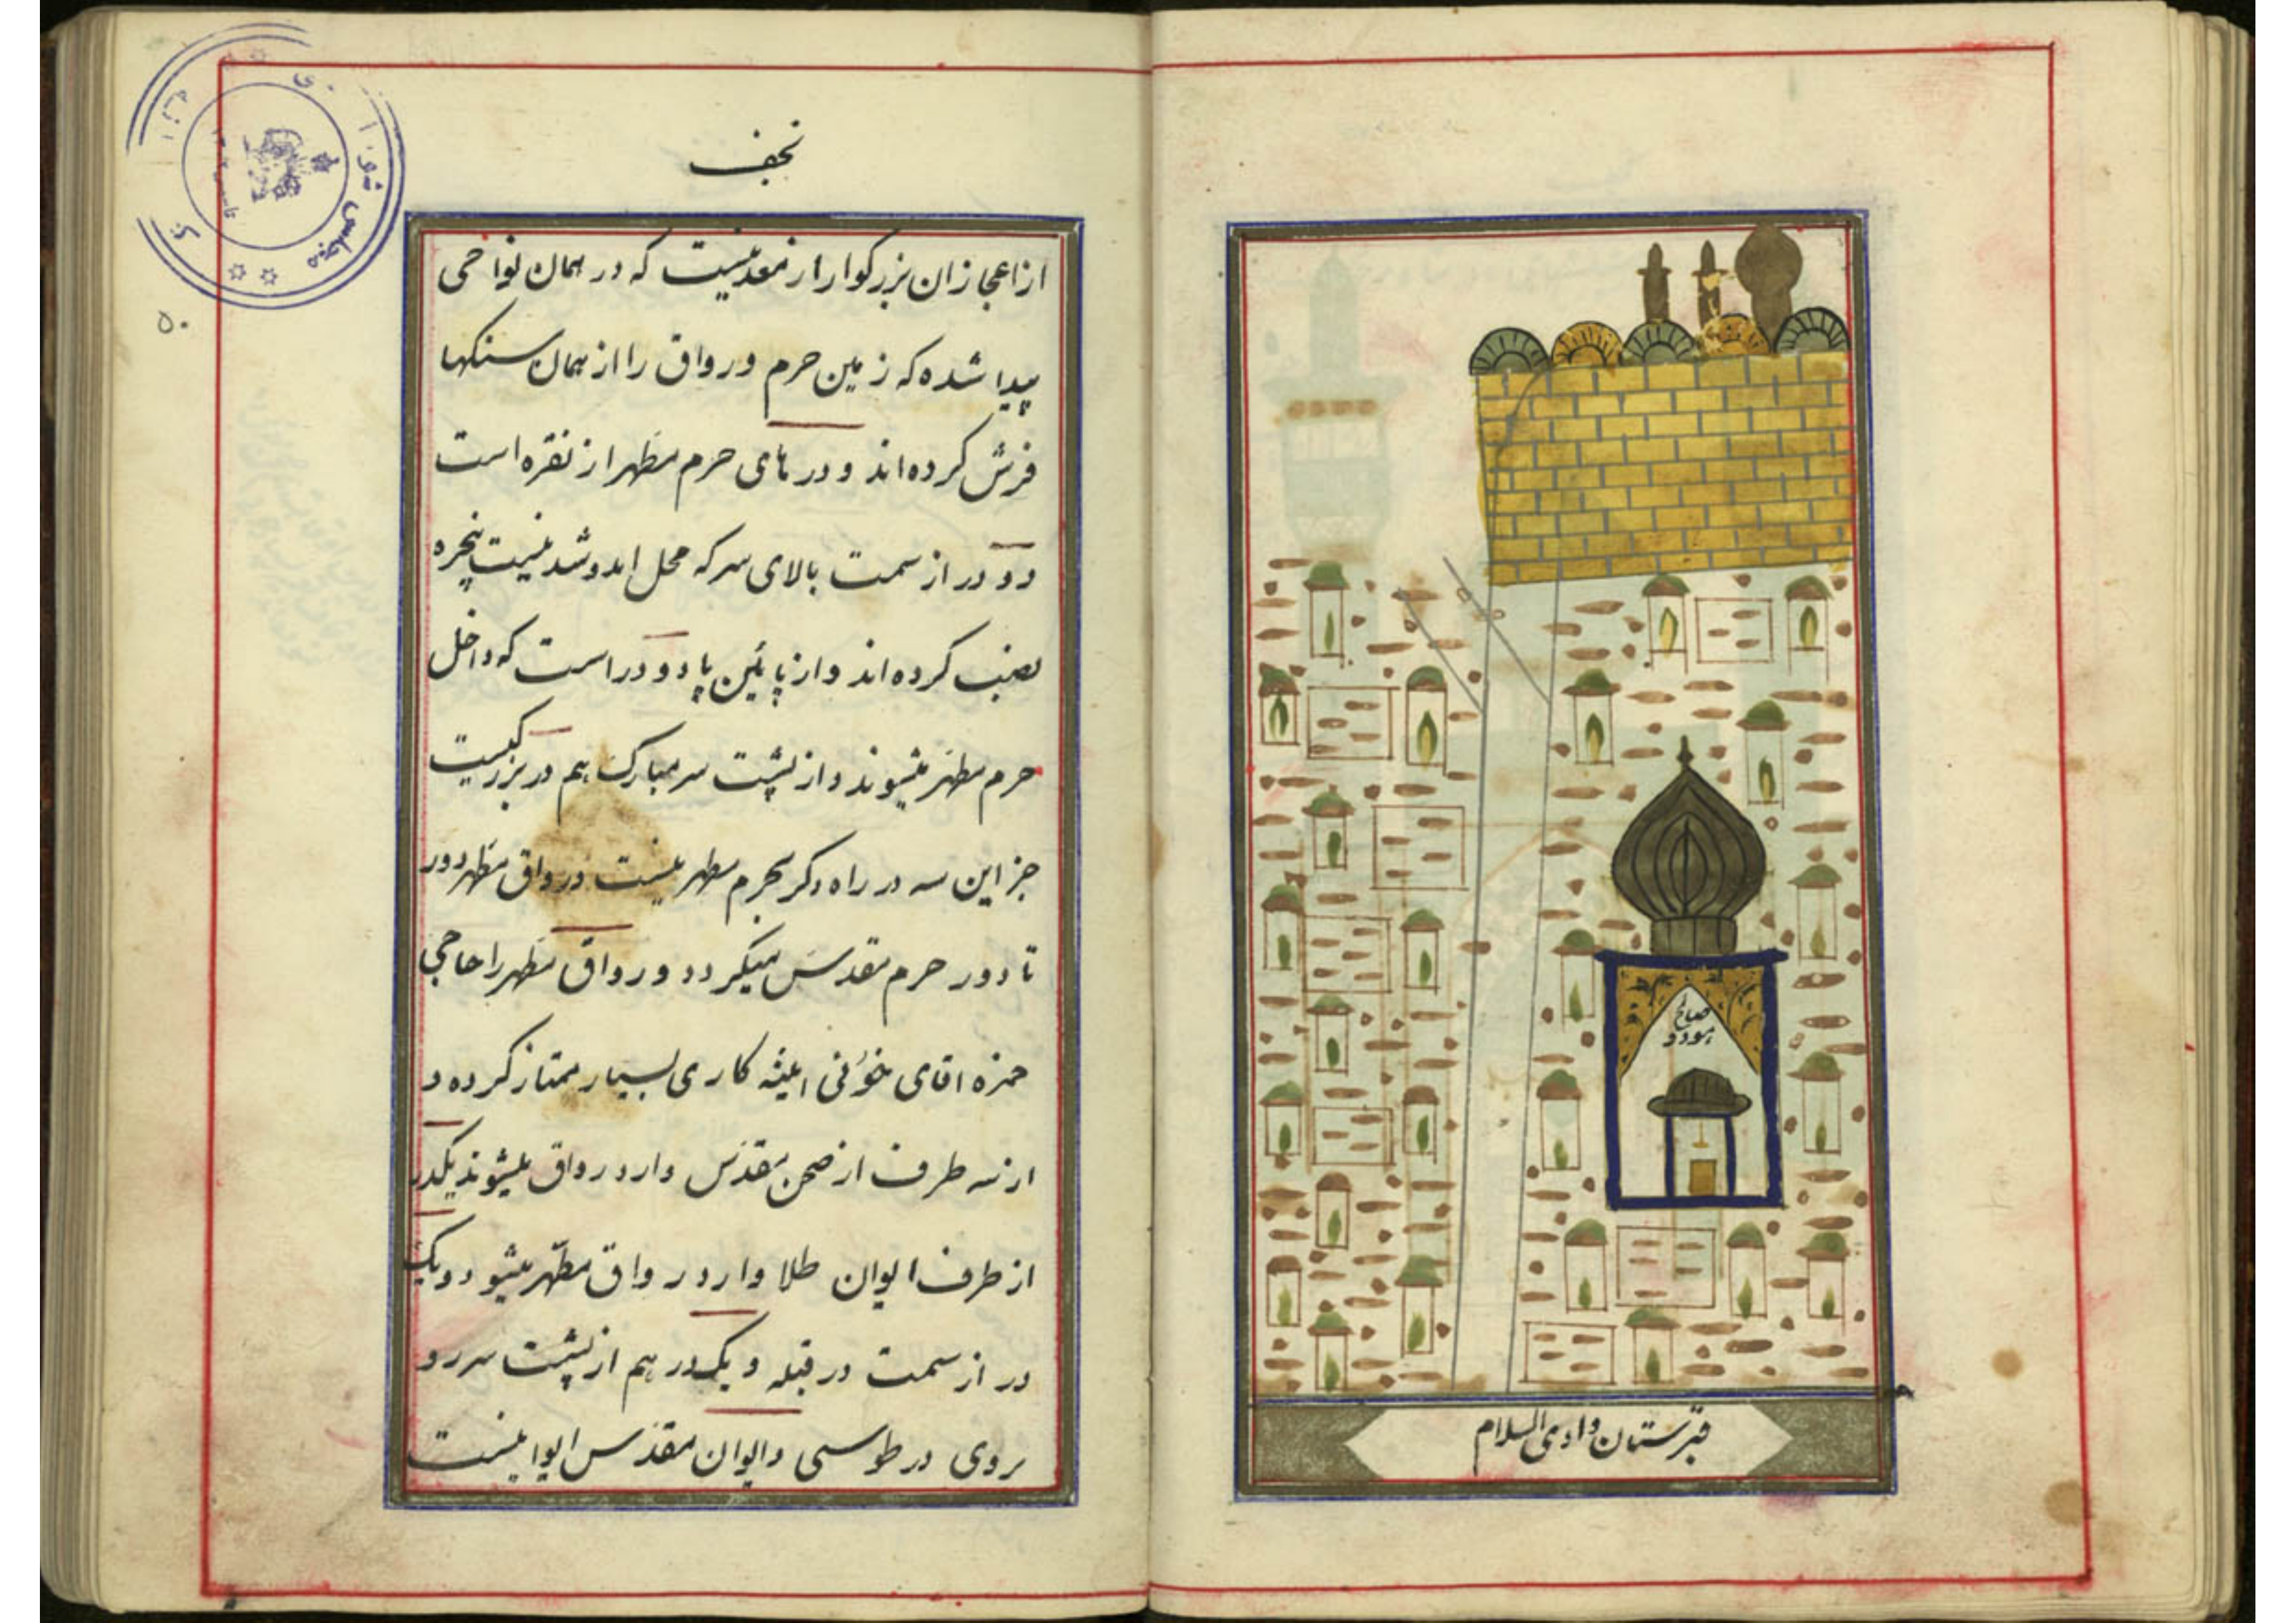 قبرستان وادی السلام
صالح
هود و
نجف
ازاعجازان بزرکوار از معدنیست که در همان نواحی
پیدا شده که زمین حرم و رواق را از همان سنکها
فرش کرده اند و در های حرم مطهر از نقره است
دو در از سمت بالای سر که محل امد و شد نیست پنجره
نصب کرده اند و از پائین پا دو در است که داخل
حرم مطهر میشوند و از پشت سر مبارک هم در بزرکیست
جز این سه در راه دکر بحرم مطهر نیست و رواق مطهر دور
تا دور حرم مقدس میکردد و رواق مطهر را حاجی
حمزه اقای خوئی ایئنه کاری بسیار ممتاز کرده و
از سه طرف از صحن مقدس وارد رواق میشوند یکدر
از طرف ایوان طلا وارد رواق مطهر میشود و یک
در از سمت در قبله و یکدر هم از پشت سر رو
بروی در طوسی و ایوان مقدس ایوانیست
مجلس شورا
۵۰